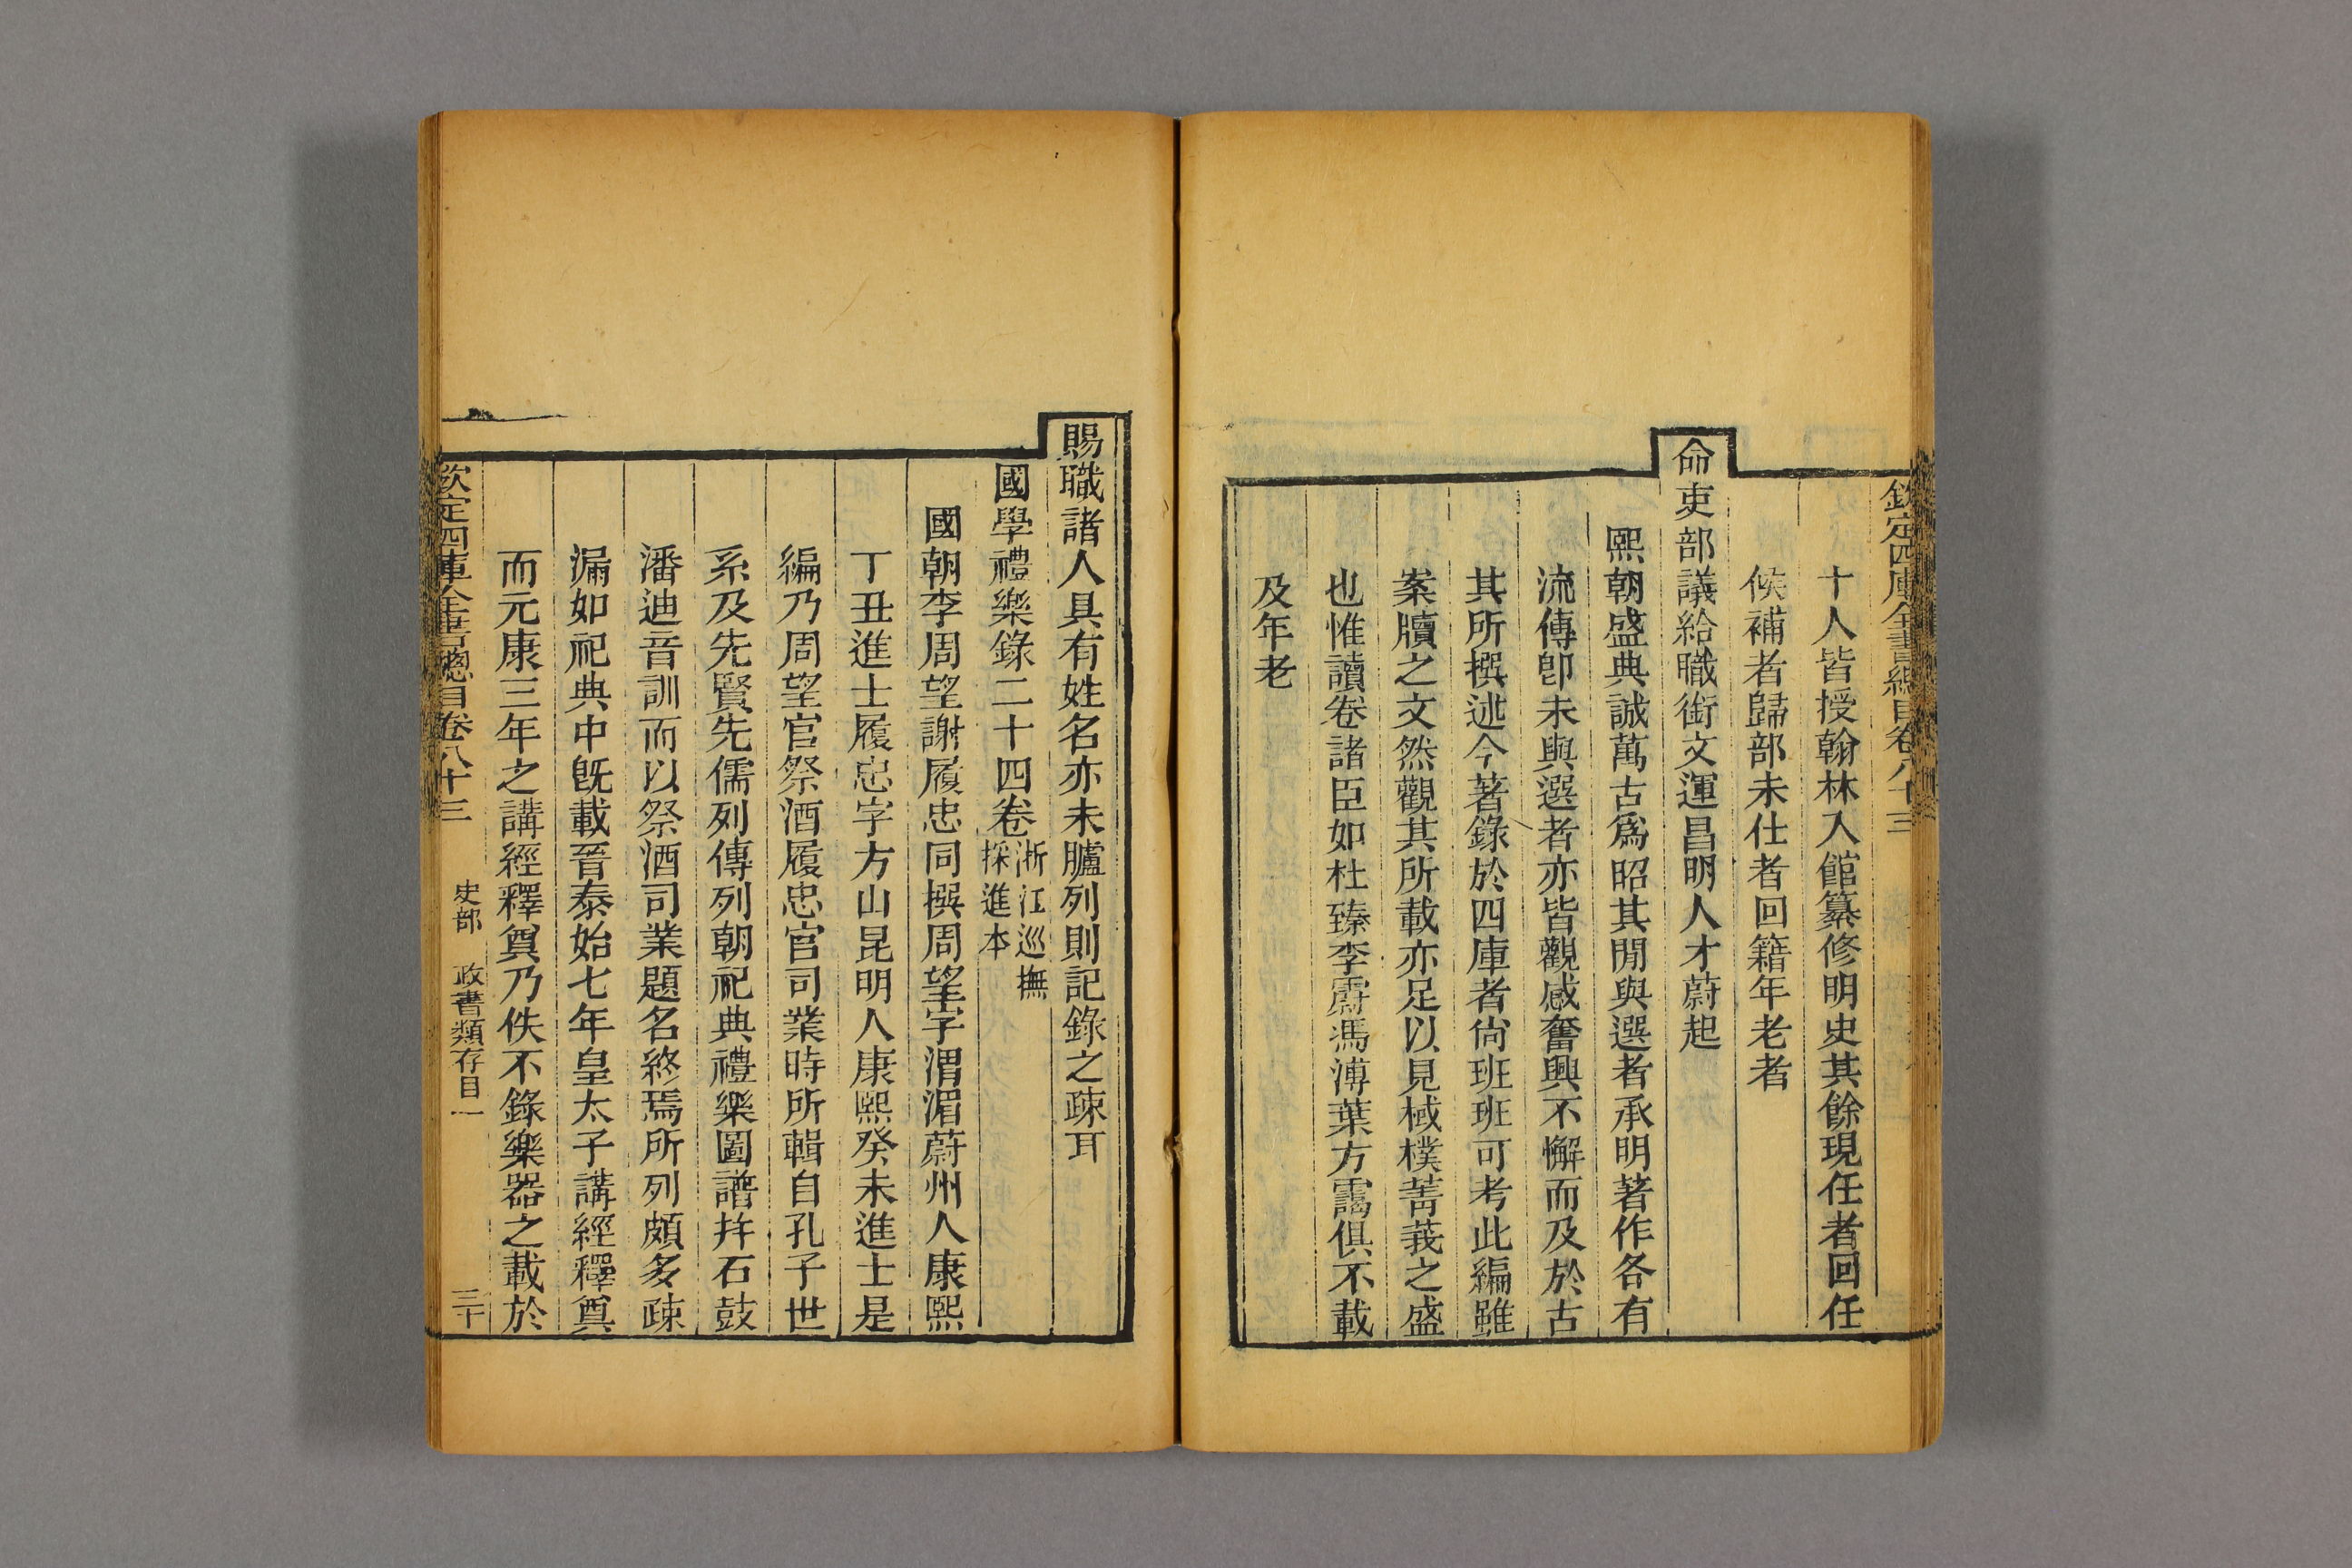 欽定四庫全書總目卷八十三
十人皆授翰林入館纂修明史其餘現任者回任
候補者歸部未仕者回籍年老者
命吏部議給職銜文運昌明人才蔚起
熙朝盛典誠萬古爲昭其閒與選者承明著作各有
流傳卽未與選者亦皆觀感奮興不懈而及於古
其所撰述今著錄於四庫者尙班班可考此編雖
案牘之文然觀其所載亦足以見棫樸菁莪之盛
也惟讀卷諸臣如杜臻李霨馮溥葉方靄俱不載
及年老
賜職諸人具有姓名亦未臚列則記錄之疎耳
國學禮樂錄二十四卷浙江巡撫
採進本
國朝李周望謝履忠同撰周望字渭湄蔚州人康熙
丁丑進士履忠字方山昆明人康熙癸未進士是
編乃周望官祭酒履忠官司業時所輯自孔子世
系及先賢先儒列傳列朝祀典禮樂圖譜幷石鼓
潘迪音訓而以祭酒司業題名終焉所列頗多疎
漏如祀典中旣載晉泰始七年皇太子講經釋奠
而元康三年之講經釋奠乃佚不錄樂器之載於
欽定四庫全書總目卷八十三 史部 政書類存目一 三十